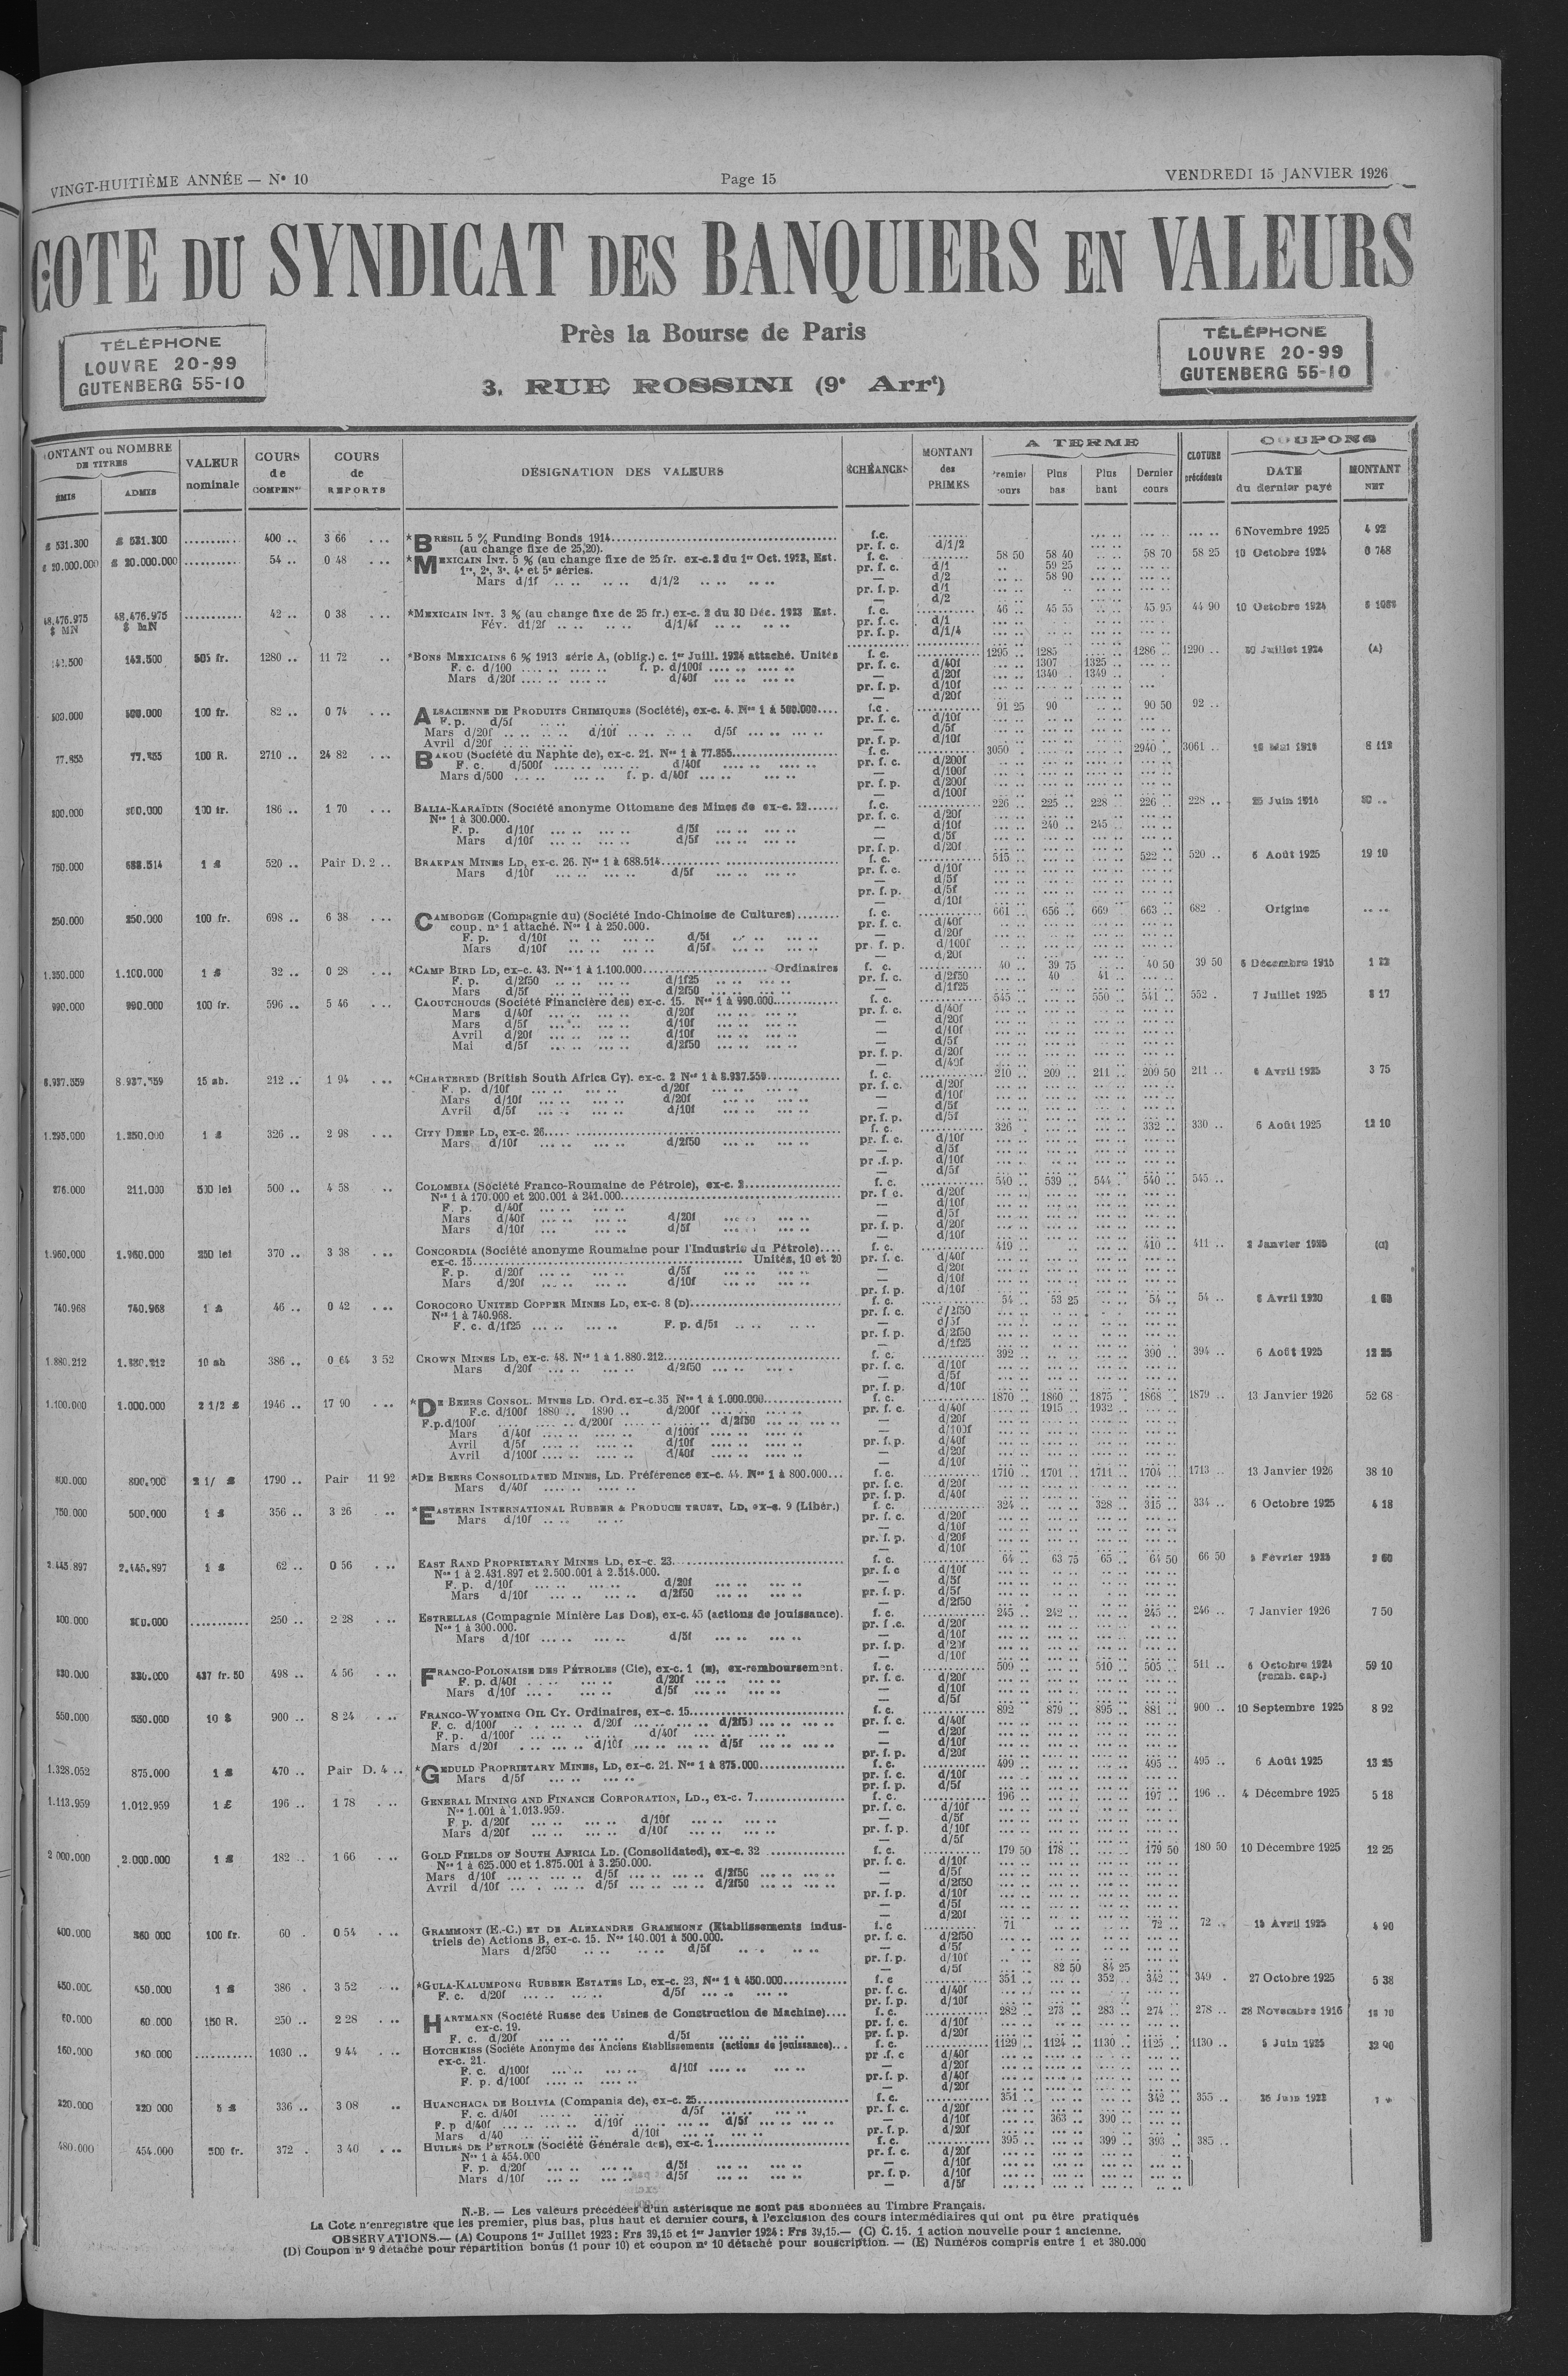 VINGT-HUITIÈME ANNÉE — N° 10
Page 15
VENDREDI 15 JANVIER 1926
COTE DU SYNDICAT DES BANQUIERS EN VALEURS
Près la Bourse de Paris
3, RUE ROSSINI (9e Arrt)
TÉLÉPHONE
LOUVRE 20-99
GUTENBERG 55-10
TÉLÉPHONE
LOUVRE 20-99
GUTENBERG 55-10
ONTANT ou NOMBRE DE TITRES
ÉMIS ADMIS
VALEUR nominale
COURS de COMPENon
COURS de REPORTS
DÉSIGNATION DES VALEURS
ÉCHÉANCES
MONTANT des PRIMES
A TERME
Premier cours Plus bas Plus haut Dernier cours
CLOTURE précédente
COUPONS
DATE du dernier payé
MONTANT NET
£ 531.300 £ 531.300 400 .. 3 66 *BRÉSIL 5 % Funding Bonds 1914 f.c. 6 Novembre 1925 4 92
(au change fixe de 25,20). pr. f. c. d/1/2
£ 20.000.000 £ 20.000.000 54 .. 0 48 *MEXICAIN INT. 5 % (au change fixe de 25 fr. ex-c.2 du 1er Oct. 1923, Est. f. c. 58 50 58 40 58 70 58 25 10 Octobre 1924
1re, 2e, 3e, 4e et 5e séries. pr. f. c. d/1 59 25
Mars d/1f d/1/2 — d/2 58 90
pr. f. p. d/1
— d/2
48.476.975 $ MN 48.476.975 $ MN 42 .. 0 38 *MEXICAIN INT. 3 % (au change fixe de 25 fr.) ex-c. 2 du 30 Déc. 1923 Est. f. c. 46 .. 45 55 45 95 44 90 10 Octobre 1924
Fév. d1/2f d/1/4f pr. f. c. d/1
pr. f. p. d/1/4
142.500 142.500 505 fr. 1280 .. 11 72 *BONS MEXICAINS 6 % 1913 série A, (oblig.) c. 1er Juill. 1924 attaché. Unités f. c. 1295 .. 1285 1286 .. 1290 .. 30 Juillet 1924 (A)
F. c. d/100 f. p. d/100f pr. f. c. d/40f 1307 1325
Mars d/20f d/40f — d/20f 1340 1349
pr. f. p. d/10f
— d/20f
500.000 500.000 100 fr. 82 .. 0 74 ALSACIENNE DE PRODUITS CHIMIQUES (Société), ex-c. 4. Nos 1 à 500.000 f.c. 91 25 90 90 50 92 ..
F. p. d/5f pr. f. c. d/10f
Mars d/20f d/10f d/5f — d/5f
Avril d/20f pr. f. p. d/10f
77.855 77.855 100 R. 2710 .. 24 82 BAKOU (Société du Naphte de), ex-c. 21. Nos 1 à 77.855 f. c. 3050 2940 3061
F. c. d/500f d/40f pr. f. c. d/200f
Mars d/500 f. p. d/40f — d/100f
pr. f. p. d/200f
— d/100f
300.000 300.000 100 fr. 186 .. 1 70 BALIA-KARAÏDIN (Société anonyme Ottomane des Mines de ex-c. 22 f. c. 226 .. 225 .. 228 .. 226 .. 228 .. 25 Juin 1914
Nos 1 à 300.000. pr. f. c. d/20f
F. p. d/10f d/5f — d/10f 240 245
Mars d/10f d/5f — d/5f
pr. f. p. d/20f
750.000 688.514 1 £ 520 .. Pair D. 2 .. BRAKPAN MINES LD, ex-c. 26. Nos 1 à 688.514 f. c. 515 522 520 .. 6 Août 1925 19 10
Mars d/10f d/5f pr. f. c. d/10f
— d/5f
pr. f. p. d/5f
— d/10f
250.000 250.000 100 fr. 698 .. 6 38 CAMBODGE (Compagnie du) (Société Indo-Chinoise de Cultures) f. c. 661 .. 656 .. 669 663 .. 682 Origine
coup. n° 1 attaché. Nos 1 à 250.000. pr. f. c. d/40f
F. p. d/10f d/5f — d/20f
Mars d/10f d/5f pr. f. p. d/100f
— d/20f
1.350.000 1.100.000 1 £ 32 .. 0 28 *CAMP BIRD LD, ex-c. 43. Nos 1 à 1.100.000 Ordinaires f. c. 40 .. 39 75 40 50 39 50 6 Décembre 1915
F. p. d/2f50 d/1f25 pr. f. c. d/2f50 40 41
Mars d/5f d/2f50 — d/1f25
990.000 990.000 100 fr. 596 .. 5 46 CAOUTCHOUCS (Société Financière des) ex-c. 15. Nos 1 à 990.000 f. c. 545 550 541 552 7 Juillet 1925 8 17
Mars d/40f d/20f pr. f. c. d/40f
Mars d/5f d/10f — d/20f
Avril d/20f d/10f — d/10f
Mai d/5f d/2f50 — d/5f
pr. f. p. d/20f
— d/40f
8.937.559 8.937.559 15 sh. 212 .. 1 94 *CHARTERED (British South Africa Cy). ex-c. 2 Nos 1 à 8.937.559 f. c. 210 .. 209 .. 211 .. 209 50 211 .. 6 Avril 1925 3 75
F. p. d/10f d/20f pr. f. c. d/20f
Mars d/10f d/20f — d/10f
Avril d/5f d/10f — d/5f
pr. f. p. d/5f
1.295.000 1.250.000 1 £ 326 .. 2 98 CITY DEEP LD, ex-c. 26 f. c. 326 332 .. 330 .. 6 Août 1925 12 10
Mars d/10f d/2f50 pr. f. c. d/10f
— d/5f
pr .f. p. d/10f
— d/5f
276.000 211.000 500 lei 500 .. 4 58 COLOMBIA (Société Franco-Roumaine de Pétrole), ex-c. 2 f. c. 540 .. 539 .. 544 540 .. 545 ..
Nos 1 à 170.000 et 200.001 à 241.000 pr. f c. d/20f
F. p. d/40f — d/10f
Mars d/40f d/20f — d/5f
Mars d/10f d/5f pr. f. p. d/20f
— d/10f
1.960.000 1.960.000 250 lei 370 .. 3 38 CONCORDIA (Société anonyme Roumaine pour l'Industrie du Pétrole) f. c. 419 410 .. 411 .. 2 Janvier 1925 (C)
ex-c. 15 Unités, 10 et 20 pr. f. c. d/40f
F. p. d/20f d/5f — d/20f
Mars d/20f d/10f — d/10f
pr. f. p. d/10f
740.968 740.968 1 £ 46 .. 0 42 COROCORO UNITED COPPER MINES LD, ex-c. 8 (D) f. c. 54 .. 53 25 54 .. 54 .. 8 Avril 1920
Nos 1 à 740.968. pr. f. c. d/2f50
F. c. d/1f25 F. p. d/5f — d/5f
pr. f. p. d/2f50
— d/1f25
1.880.212 1.880.212 10 sh 386 .. 0 64 3 52 CROWN MINES LD, ex-c. 48. Nos 1 à 1.880.212 f. c. 392 390 .. 394 .. 6 Août 1925 12 25
Mars d/20f d/2f50 pr. f. c. d/10f
— d/5f
pr. f. p. d/10f
1.100.000 1.000.000 2 1/2 £ 1946 .. 17 90 *DE BEERS CONSOL. MINES LD. Ord. ex-c.35 Nos 1 à 1.000.000 f. c. 1870 1860 1875 1868 1879 .. 13 Janvier 1926 52 68
F.c. d/100f 1880 .. 1890 .. d/200f pr. f. c. d/40f 1915 1932
F.p.d/100f d/200f d/2f50 — d/20f
Mars d/40f d/100f — d/100f
Avril d/5f d/10f pr. f. p. d/40f
Avril d/100f d/40f — d/20f
— d/10f
800.000 800.000 2 1/ £ 1790 .. Pair 11 92 *DE BEERS CONSOLIDATED MINES, LD. Préférence ex-c. 44. Nos 1 à 800.000 f. c. 1710 1701 1711 1704 1713 .. 13 Janvier 1926 38 10
Mars d/40f pr. f. c. d/20f
pr. f. p. d/40f
750.000 500.000 1 £ 356 .. 3 26 *EASTERN INTERNATIONAL RUBBER & PRODUCE TRUST, LD, ex-c. 9 (Libér.) f. c. 324 .. 328 315 .. 334 .. 6 Octobre 1925 4 18
Mars d/10f pr. f. c. d/20f
— d/10f
pr. f. p. d/20f
— d/10f
2.445.897 2.445.897 1 £ 62 .. 0 56 EAST RAND PROPRIETARY MINES LD, ex-c. 23 f. c. 64 .. 63 75 65 .. 64 50 66 50 Février
Nos 1 à 2.431.897 et 2.500.001 à 2.514.000. pr. f. c d/10f
F. p. d/10f d/20f — d/5f
Mars d/10f d/2f50 pr. f. p. d/5f
— d/2f50
300.000 300.000 250 .. 2 28 ESTRELLAS (Compagnie Minière Las Dos), ex-c. 45 (actions de jouissance). f. c. 245 .. 242 245 .. 246 .. 7 Janvier 1926 7 50
Nos 1 à 300.000. pr. f .c. d/20f
Mars d/10f d/5f — d/10f
pr. f. p. d/20f
— d/10f
330.000 330.000 437 fr. 50 498 .. 4 56 FRANCO-POLONAISE DES PÉTROLES (Cie), ex-c. 1 (E), ex-remboursement. f. c. 509 510 .. 505 .. 511 .. 6 Octobre 1924 59 10
F. p. d/40f d/20f pr. f. c. d/20f (remb. cap.)
Mars d/10f d/5f — d/10f
— d/5f
550.000 550.000 10 $ 900 .. 8 24 FRANCO-WYOMING OIL CY. Ordinaires, ex-c. 15 f. c. 892 879 .. 895 .. 881 .. 900 .. 10 Septembre 1925 8 92
F. c. d/100f d/20f d/2f50 pr. f. c. d/40f
F. p. d/100f d/40f — d/20f
Mars d/20f d/10f d/5f — d/10f
pr. f. p. d/20f
1.328.052 875.000 1 £ 470 .. Pair D. 4 .. *GEDULD PROPRIETARY MINES, LD, ex-c. 21. Nos 1 à 875.000 f. c. 499 495 .. 495 .. 6 Août 1925 13 25
Mars d/5f pr. f. c. d/10f
pr. f. p. d/5f
1.113.959 1.012.959 1 £ 196 .. 1 78 GENERAL MINING AND FINANCE CORPORATION, LD., ex-c. 7 f. c. 196 197 196 .. 4 Décembre 1925 5 18
Nos 1.001 à 1.013.959. pr. f. c. d/10f
F. p. d/20f d/10f — d/5f
Mars d/20f d/10f pr. f. p. d/10f
— d/5f
2 000.000 2.000.000 1 £ 182 .. 1 66 GOLD FIELDS OF SOUTH AFRICA LD. (Consolidated), ex-c. 32 f. c. 179 50 178 179 50 180 50 10 Décembre 1925 12 25
Nos 1 à 625.000 et 1.875.001 à 3.250.000. pr. f. c. d/10f
Mars d/10f d/5f d/2f50 — d/5f
Avril d/10f d/5f d/2f50 — d/2f50
pr. f. p. d/10f
— d/5f
— d/20f
400.000 360 000 100 fr. 60 . 0 54 GRAMMONT (E.-C.) ET DE ALEXANDRE GRAMMONT (Etablissements indus- f. c 71 72 .. 72 .. 15 Avril 1925 4 90
triels de) Actions B, ex-c. 15. Nos 140.001 à 500.000. pr. f. c. d/2f50
Mars d/2f50 d/5f — d/5f
pr. f. p. d/10f
— d/5f 82 50 84 25
450.000 450.000 1 £ 386 . 3 52 *GULA-KALUMPONG RUBBER ESTATES LD, ex-c. 23, Nos 1 à 450.000 f. c 351 352 342 .. 349 . 27 Octobre 1925 5 38
F. c. d/20f d/5f pr. f. c. d/40f
pr. f. p. d/10f
60.000 60.000 150 R. 250 .. 2 28 HARTMANN (Société Russe des Usines de Construction de Machine) f. c. 282 .. 273 .. 283 .. 274 .. 278 .. 28 Novembre 1916
ex-c. 19. pr. f. c. d/10f
F. c. d/20f d/5f pr. f. p. d/20f
160.000 160.000 1030 .. 9 44 HOTCHKISS (Société Anonyme des Anciens Etablissements (actions de jouissance) f. c. 1129 1124 1130 1125 1130 .. 5 Juin 1925 22 90
ex-c. 21. pr .f. c d/40f
F. c. d/100f d/10f — d/20f
F. p. d/100f pr. f. p. d/40f
— d/20f
320.000 320 000 5 £ 336 .. 3 08 HUANCHACA DE BOLIVIA (Compania de), ex-c. 25 f. c. 351 342 .. 355 ..
F. c. d/40f d/5f pr. f. c. d/20f
F. p d/40f d/10f d/5f — d/10f 363 390
Mars d/40 d/10f pr. f. p. d/20f
480.000 454.000 500 fr. 372 . 3 40 HUILES DE PÉTROLE (Société Générale des), ex-c. 1 f. c. 395 399 393 .. 385 ..
Nos 1 à 454.000 pr. f. c. d/20f
F. p. d/20f d/5f — d/10f
Mars d/10f d/5f pr. f. p. d/10f
— d/5f
N.-B. — Les valeurs précédées d'un astérisque ne sont pas abonnées au Timbre Français.
La Cote n'enregistre que les premier, plus bas, plus haut et dernier cours, à l'exclusion des cours intermédiaires qui ont pu être pratiqués
OBSERVATIONS.— (A) Coupons 1er Juillet 1923 : Frs 39,15 et 1er Janvier 1924 : Frs 39,15.— (C) C. 15. 1 action nouvelle pour 1 ancienne.
(D) Coupon n° 9 détaché pour répartition bonus (1 pour 10) et coupon n° 10 détaché pour souscription. — (E) Numéros compris entre 1 et 380.000